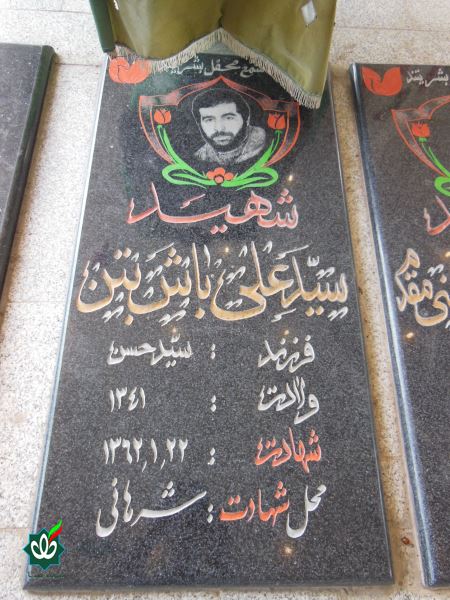 شمع محفل بشریت
شهید
سید علی باش بتن
فرزند : سید حسن
ولادت : ۱۳۴۱
شهادت : ۱۳۶۲٫۱٫۲۲
محل شهادت : شرهانی
بشریتند